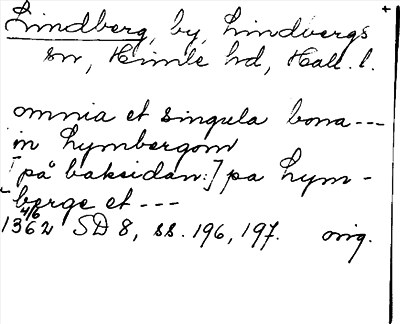 Lindberg, by, Lindbergs +
sn, Himle hd, Hall. l.
omnia et singula bona ---
in Lymbergom
[på baksidan:] pa Lym-
berge et ---
1362 4/6 SD 8, ss. 196, 197. orig.